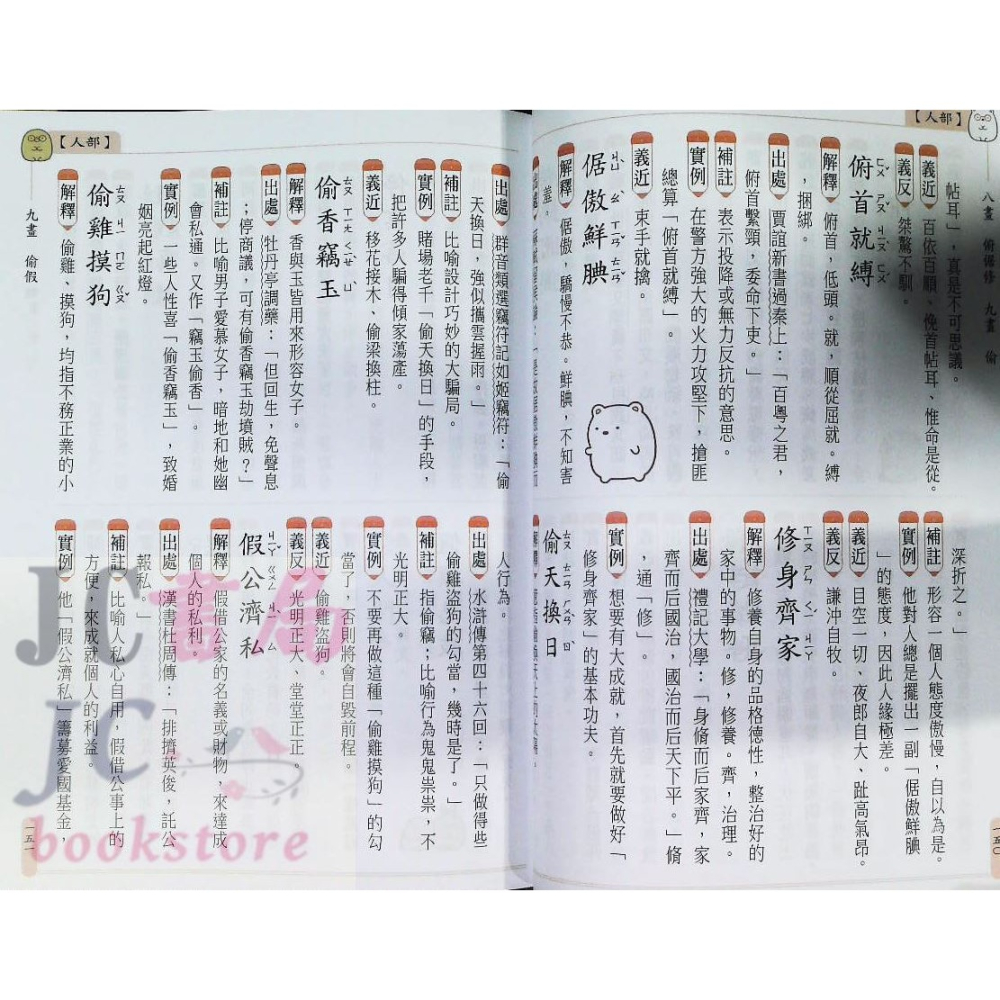 【人部】
八畫 俯倨修 九畫 偷
帖耳」，真是不可思議。
義近 百依百順、俛首帖耳、惟命是從。
義反 桀驁不馴。
俯首就縛
ㄈㄨˇ ㄕㄡˇ ㄐㄧㄡˋ ㄈㄨˋ
解釋 俯首，低頭。就，順從屈就。縛
，捆綁。
出處 賈誼新書過秦上：「百粵之君，
俯首繫頸，委命下吏。」
補註 表示投降或無力反抗的意思。
實例 在警方強大的火力攻堅下，搶匪
總算「俯首就縛」。
義近 束手就擒。
倨傲鮮腆
ㄐㄩˋ ㄠˋ ㄒㄧㄢˇ ㄊㄧㄢˇ
解釋 倨傲，驕慢不恭。鮮腆，不知害
羞。
深折之。」
補註 形容一個人態度傲慢，自以為是。
實例 他對人總是擺出一副「倨傲鮮腆
」的態度，因此人緣極差。
義近 目空一切、夜郎自大、趾高氣昂。
義反 謙沖自牧。
修身齊家
ㄒㄧㄡ ㄕㄣ ㄑㄧˊ ㄐㄧㄚ
解釋 修養自身的品格德性，整治好的
家中的事物。修，修養。齊，治理。
出處 禮記大學：「身脩而后家齊，家
齊而后國治，國治而后天下平。」脩
，通「修」。
實例 想要有大成就，首先就要做好「
修身齊家」的基本功夫。
偷天換日
ㄊㄡ ㄊㄧㄢ ㄏㄨㄢˋ ㄖˋ
解釋
一五〇
【人部】
九畫 偷假
出處 群音類選竊符記如姬竊符：「偷
天換日，強似攜雲握雨。」
補註 比喻設計巧妙的大騙局。
實例 賭場老千「偷天換日」的手段，
把許多人騙得傾家蕩產。
義近 移花接木、偷梁換柱。
偷香竊玉
ㄊㄡ ㄒㄧㄤ ㄑㄧㄝˋ ㄩˋ
解釋 香與玉皆用來形容女子。
出處 牡丹亭調藥：「但回生，免聲息
；停商議，可有偷香竊玉劫墳賊？」
補註 比喻男子愛慕女子，暗地和她幽
會私通。又作「竊玉偷香」。
實例 一些人性喜「偷香竊玉」，致婚
姻亮起紅燈。
偷雞摸狗
ㄊㄡ ㄐㄧ ㄇㄛ ㄍㄡˇ
解釋 偷雞、摸狗，均指不務正業的小
人行為。
出處 水滸傳第四十六回：「只做得些
偷雞盜狗的勾當，幾時是了。」
補註 指偷竊；比喻行為鬼鬼祟祟，不
光明正大。
實例 不要再做這種「偷雞摸狗」的勾
當了，否則將會自毀前程。
義近 偷雞盜狗。
義反 光明正大、堂堂正正。
假公濟私
ㄐㄧㄚˇ ㄍㄨㄥ ㄐㄧˋ ㄙ
解釋 假借公家的名義或財物，來達成
個人的私利。
出處 漢書杜周傳：「排擠英俊，託公
報私。」
補註 比喻人私心自用，假借公事上的
方便，來成就個人的利益。
實例 他「假公濟私」籌募愛國基金，
一五一
JC書局
JC
bookstore